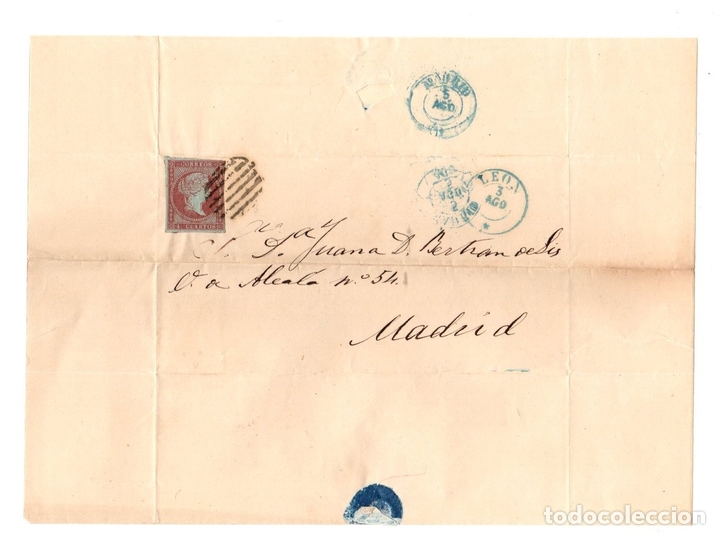 MADRID
5
AGO
CORREOS
4 CUARTOS
LEON
3
AGO
S. Dª Juana D. Bertran de Lis
C. de Alcala nº 54.
Madrid
todocoleccion.net